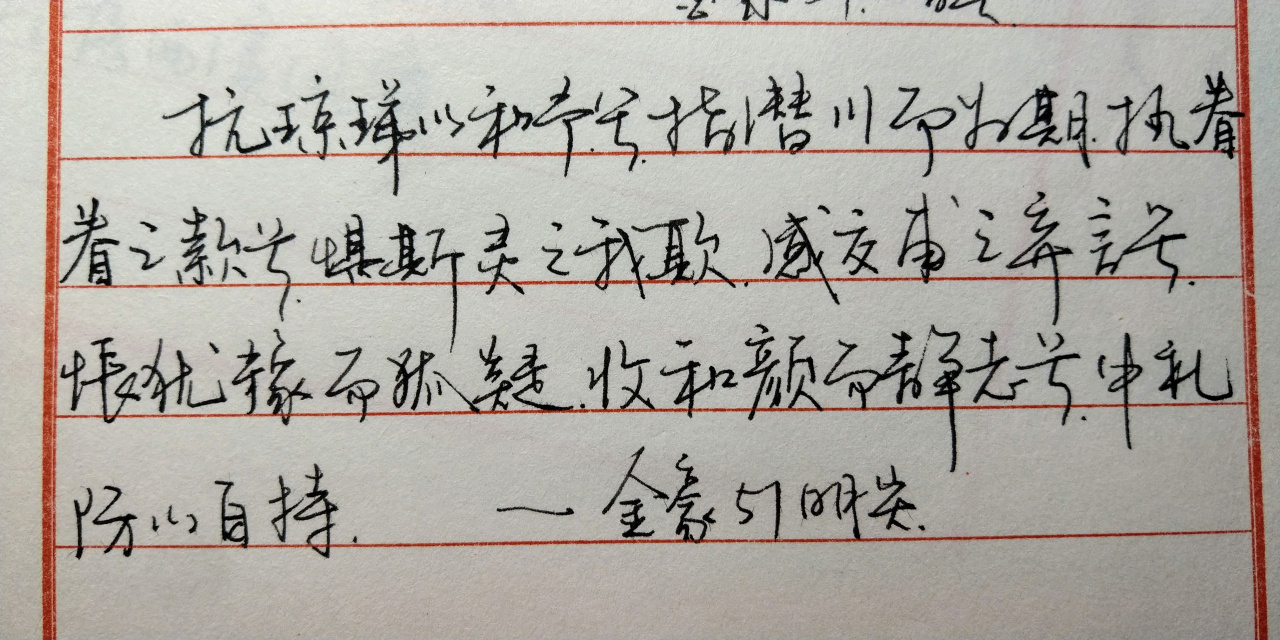 抗琼珶以和予兮.指潜川而为期.执眷
眷之款兮.惧斯灵之我欺.感交甫之弃言兮.
怅犹豫而狐疑.收和颜而静志兮.申礼
防以自持. — 金豪引明尖.